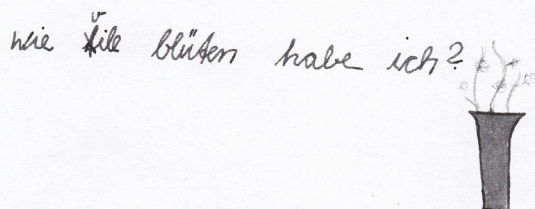 wie vile blüten habe ich?